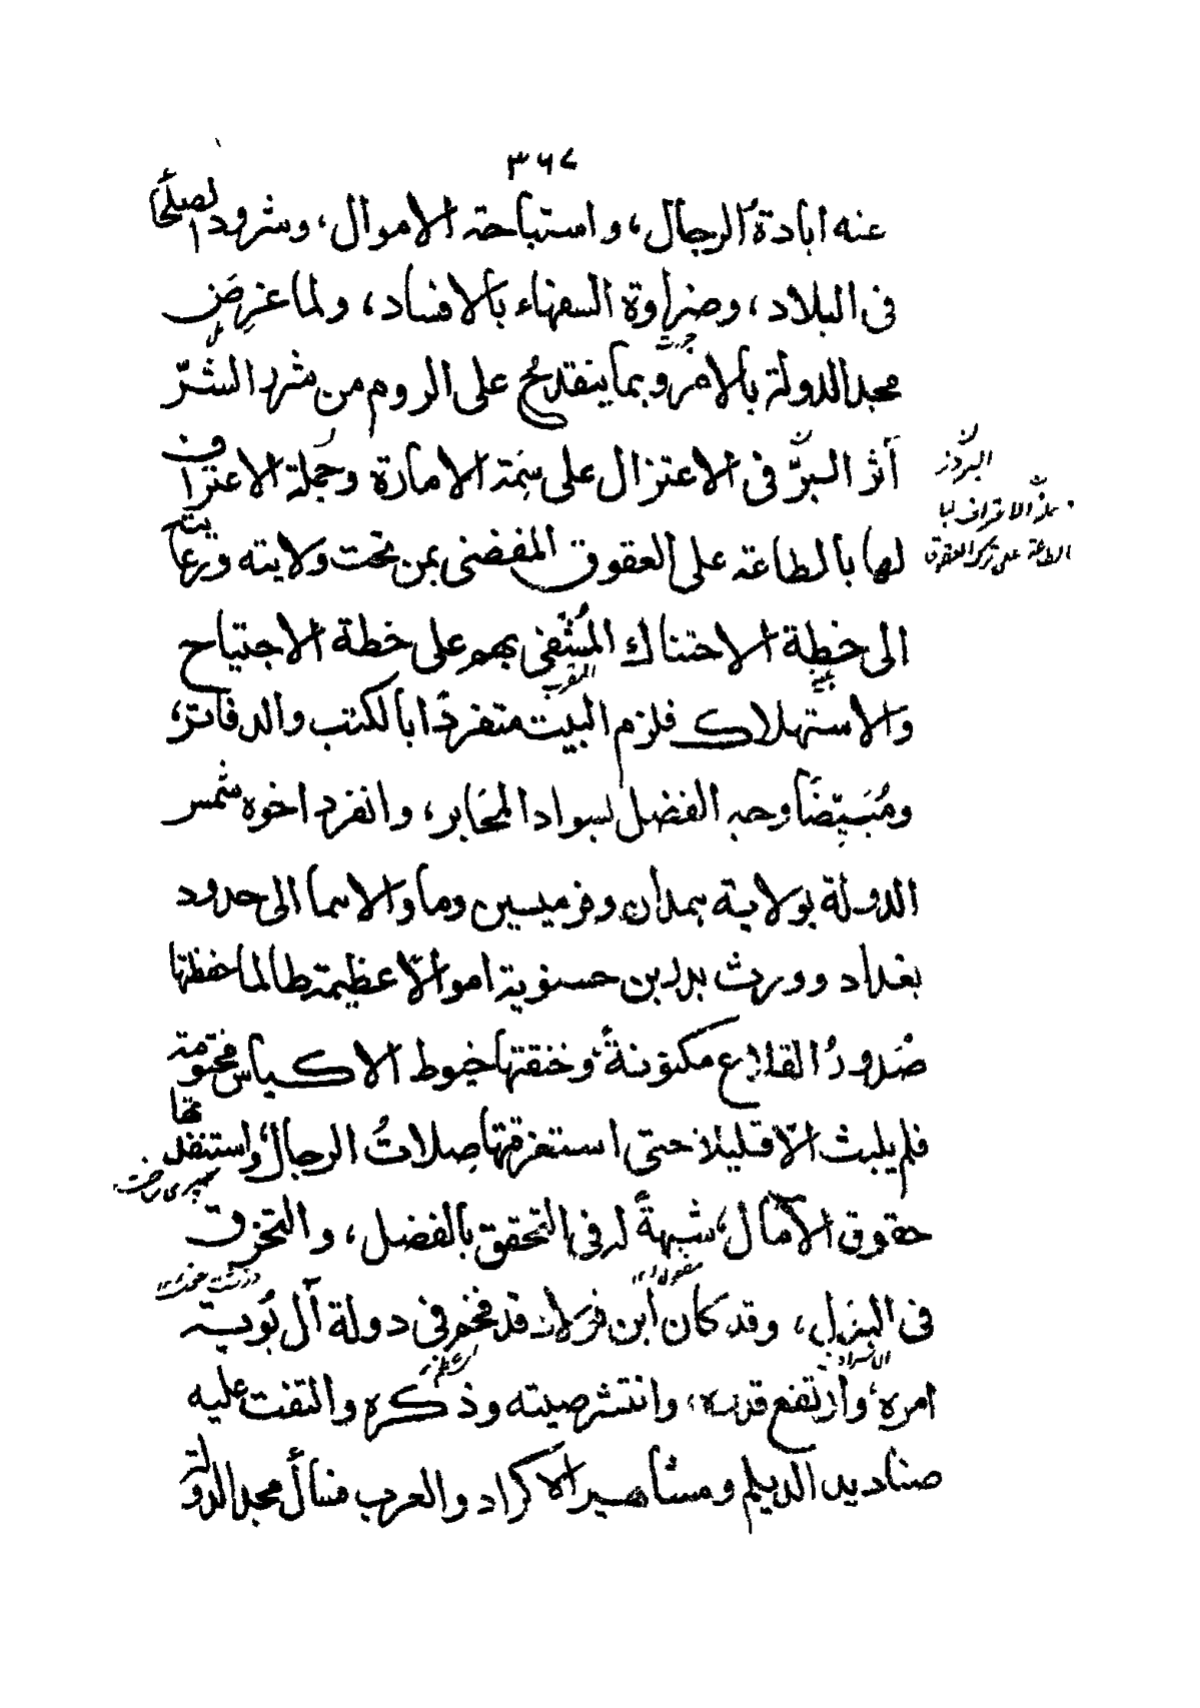 ٣٦٧
عنه ابادةُ الرجال، واستباحة الاموال، وشرود الصلحَٓا
فى البلاد، وضراوة السفهاء بالافساد، ولما عَرِضَ
مجد الدولة بالامر وبما ينقدح على الروم من شرار الشرّ
أثر البرَّ فى الاعتزال على سِمَة الامارة وحملة الاعتراف
لها بالطاعة على العقوق المفضى بمن تحت ولايته ورعايته
الى خطة الاحتناك المُشْفى بهم على خطة الاجتياح
والاستهلاك فلزم البيت متفردًا بالكتب والدفاتر،
ومُبَيّضًا وجه الفضل بسواد المحَابر، وانفرد اخوه شمس
الدولة بولاية همدان وقرميسين وما والاهما الى حدود
بغداد وورث بدر بن حسنوية اموالًا عظيمة طالما حفظتها
صُدورُ القلاع مكنونةً، وخنقتها خيوط الاكياس مختومة
فلم يلبث الّا قليلا حتى استغرقتها صِلاتُ الرجال، واستنفدتها
حقوق الآمال، شبهةً له فى التحقق بالفضل، والتخرق
فى البذل، وقد كان ابن فولاذ قد فخم فى دولة آل بُويه
امره، وارتفع قدره، وانتشر صيته وذكره والتفت عليه
صناديد الديلم ومشاهير الاكراد والعرب فسأل مجد الدولة